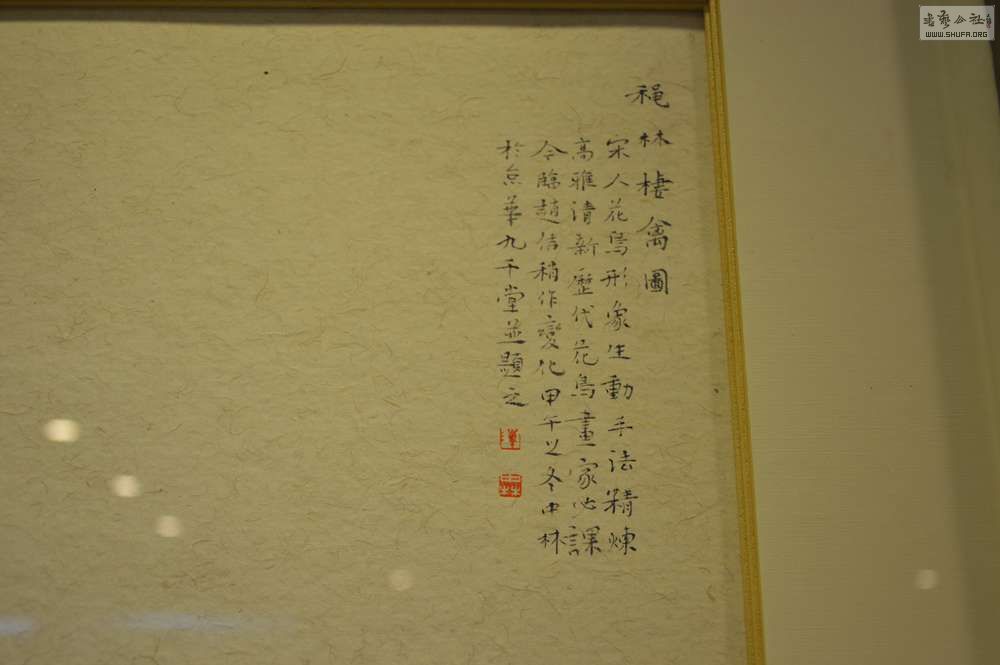 林棲禽圖
宋人花鳥形象生動手法精煉
高雅清新歷代花鳥畫家必課
今臨趙佶稍作變化甲午之冬中林
於京華九千堂並題之
中林
书艺公社
WWW.SHUFA.ORG